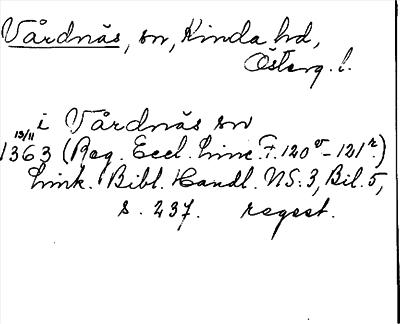 Vårdnäs, sn, Kinda hd,
Österg. l.
i Vårdnäs sn
13/11
1363 (Reg. Eccl. Linc. F. 120v-121r.)
Link. Bibl. Handl. NS: 3, Bil. 5,
s. 237. regest.